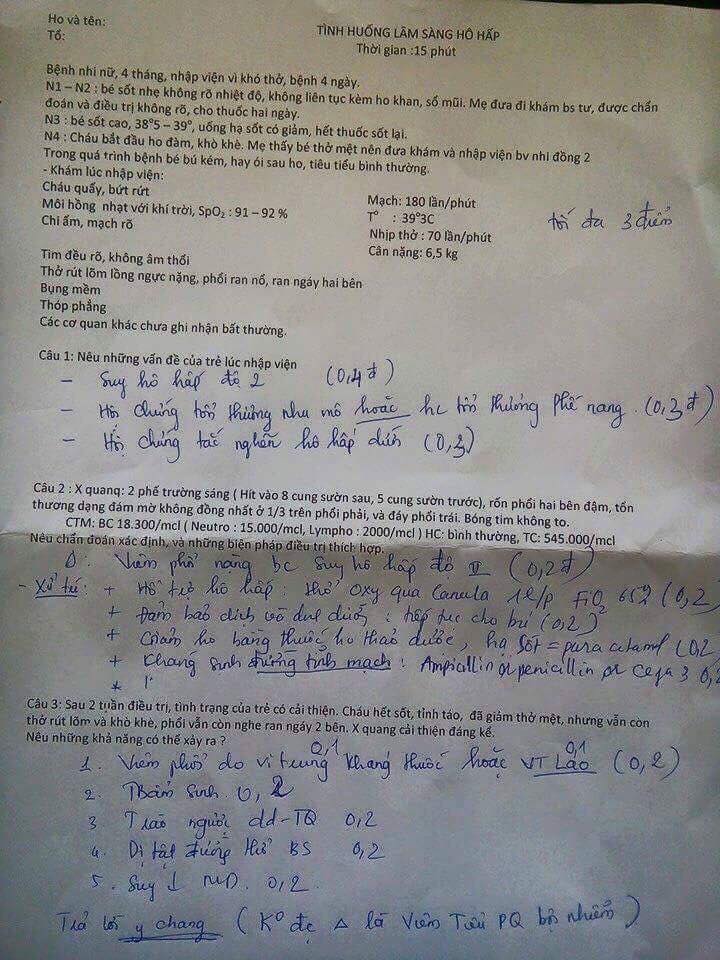 Ho và tên:
Tổ:
TÌNH HUỐNG LÂM SÀNG HÔ HẤP
Thời gian :15 phút
Bệnh nhi nữ, 4 tháng, nhập viện vì khó thở, bệnh 4 ngày.
N1 – N2 : bé sốt nhẹ không rõ nhiệt độ, không liên tục kèm ho khan, sổ mũi. Mẹ đưa đi khám bs tư, được chẩn
đoán và điều trị không rõ, cho thuốc hai ngày.
N3 : bé sốt cao, 38°5 – 39°, uống hạ sốt có giảm, hết thuốc sốt lại.
N4 : Cháu bắt đầu ho đàm, khò khè. Mẹ thấy bé thở mệt nên đưa khám và nhập viện bv nhi đồng 2
Trong quá trình bệnh bé bú kém, hay ói sau ho, tiêu tiểu bình thường.
- Khám lúc nhập viện:
Cháu quấy, bứt rứt
Môi hồng nhạt với khí trời, SpO₂ : 91 – 92 %
Chi ấm, mạch rõ
Mạch: 180 lần/phút
T° : 39°3C
Nhịp thở : 70 lần/phút
Cân nặng: 6,5 kg
tối đa 3 điểm
Tim đều rõ, không âm thổi
Thở rút lõm lồng ngực nặng, phổi ran nổ, ran ngáy hai bên
Bụng mềm
Thóp phẳng
Các cơ quan khác chưa ghi nhận bất thường.
Câu 1: Nêu những vấn đề của trẻ lúc nhập viện
– Suy hô hấp độ 2 (0,4đ)
– Hội chứng tổn thương nhu mô hoặc hc tổn thương phế nang. (0,3đ)
– Hội chứng tắc nghẽn hô hấp dưới (0,3)
Câu 2 : X quang: 2 phế trường sáng ( Hít vào 8 cung sườn sau, 5 cung sườn trước), rốn phổi hai bên đậm, tổn
thương dạng đám mờ không đồng nhất ở 1/3 trên phổi phải, và đáy phổi trái. Bóng tim không to.
CTM: BC 18.300/mcl ( Neutro : 15.000/mcl, Lympho : 2000/mcl ) HC: bình thường, TC: 545.000/mcl
Nêu chẩn đoán xác định, và những biện pháp điều trị thích hợp.
Δ: Viêm phổi nặng bc Suy hô hấp độ II (0,2đ)
– Xử trí: + Hỗ trợ hô hấp : thở oxy qua Canula 1l/p FiO₂ (0,2)
+ Đảm bảo dịch và dd dưỡng : tiếp tục cho bú (0,2)
+ Giảm ho bằng thuốc ho thảo dược, hạ sốt = paracetamol (0,2)
+ Kháng sinh đường tĩnh mạch : Ampicillin or penicillin or Cepha 3 0,2
Câu 3: Sau 2 tuần điều trị, tình trạng của trẻ có cải thiện. Cháu hết sốt, tỉnh táo, đã giảm thở mệt, nhưng vẫn còn
thở rút lõm và khò khè, phổi vẫn còn nghe ran ngáy 2 bên. X quang cải thiện đáng kể.
Nêu những khả năng có thể xảy ra ?
0,1 0,1
1. Viêm phổi do vi trùng kháng thuốc hoặc VT Lao (0,2)
2. TBẩm sinh 0,2
3 Trào ngược dd-TQ 0,2
4. Dị tật đường thở BS 0,2
5. Suy ↓ MD. 0,2
Trả lời y chang ( K° đc Δ là Viêm Tiểu PQ bội nhiễm )